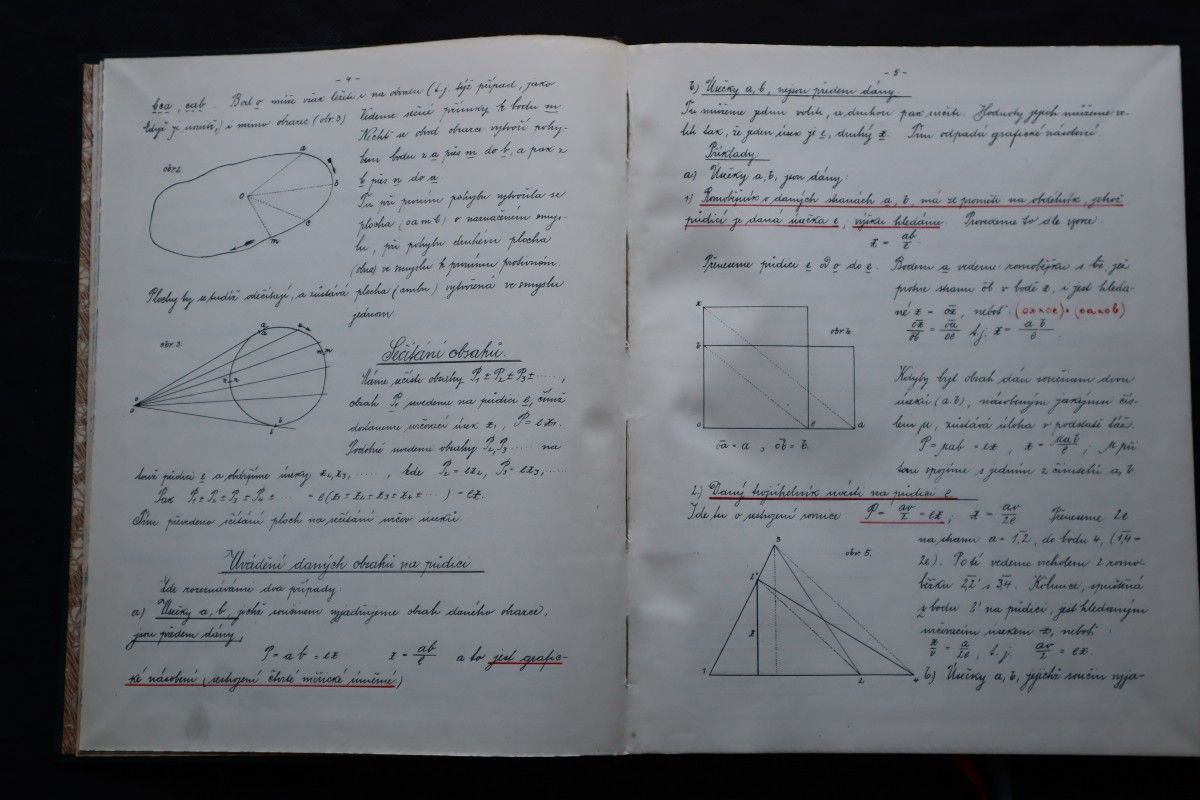 - 4 -
bsa, sab. Bod o může však ležeti i na obvodu (t.j. týž případ, jako
když je uvnitř) i mimo obrazec (obr. 3) Vedeme sečné přímky k bodu m.
Nechť se obvod obrazce vytvoří pohy-
bem bodu z a přes m do b, a pak z
b přes n do a
obr. 2.
a
b
c
m
o
Tu při prvním pohybu vytvořila se
plocha (oamb) v naznačeném smys-
lu, při pohybu druhém plocha
(obna) ve smyslu k prvnímu protivném.
Plochy ty se tudíž odečítají, a zůstává plocha (ambn) vytvořená ve smyslu
jednom.
obr. 3.
a
m
n
b
o
Sečítání obsahů.
Máme sčísti obsahy P₁ ± P₂ ± P₃ ± ......,
obsah P₁ uvedeme na půdici e, čímž
dostaneme určovací úsek z₁, P₁ = ez₁.
Podobně uvedeme obsahy P₂, P₃ ..... na
touž půdici e a obdržíme úseky z₂, z₃, ...., kde P₂ = ez₂, P₃ = ez₃, ......
Pak P₁ ± P₂ ± P₃ ± P₄ ± .... = e(z₁ ± z₂ ± z₃ ± z₄ ± ....) = ez.
Tím převedeno sčítání ploch na sčítání určov. úseků.
Uvádění daných obsahů na půdici
Zde rozeznáváme dva případy:
a) Úsečky a, b, jichž součinem vyjadřujeme obsah daného obrazce,
jsou předem dány,
P = ab = ez z = ab/e a to jest grafic-
ké násobení (sestrojení čtvrté měřické úměrné)
- 5 -
b) Úsečky a, b, nejsou předem dány.
Tu můžeme jednu voliti, a druhou pak určiti. Hodnoty jejich můžeme vo-
liti tak, že jeden úsek je e, druhý z. Tím odpadá grafické násobení.
Příklady:
a) Úsečky a, b, jsou dány:
1) Rovnoběžník o daných stranách a, b, má se proměnit na obdélník, jehož
půdicí je daná úsečka e; výšku hledáme. Provedeme to dle vzorce.
z = ab/e
Přeneseme půdici e od o do e. Bodem a vedeme rovnoběžku s be, jež
protne stranu ob v bodě z, i jest hleda-
né z = oz, neboť:
oz/ob = oa/oe t.j. z = a b/e
z
b
o
e
a
obr. 4.
oa = a, ob = b.
Kdyby byl obsah dán součinem dvou
úseků (a, b), násobeným jakýmsi čís-
lem μ, zůstává úloha v podstatě táž.
P = μab = ez, z = μab/e, μ při
tom spojíme s jedním z činitelů a, b.
2.) Daný trojúhelník uvésti na půdici e.
Jde tu o sestrojení rovnice P = av/2 = ez; z = av/2e Přeneseme 2e
na stranu a = 1,2, do bodu 4, (1,4 =
2e). Poté vedeme vrcholem 2 rovno-
běžku 2,2' s 3,4. Kolmice, spuštěná
z bodu 2' na půdici, jest hledaným
určovacím úsekem z, neboť
z/v = a/2e, t.j. av/2 = ez.
3
obr. 5.
2'
z
1
2
4
b) Úsečky a, b, jejichž součin vyja-